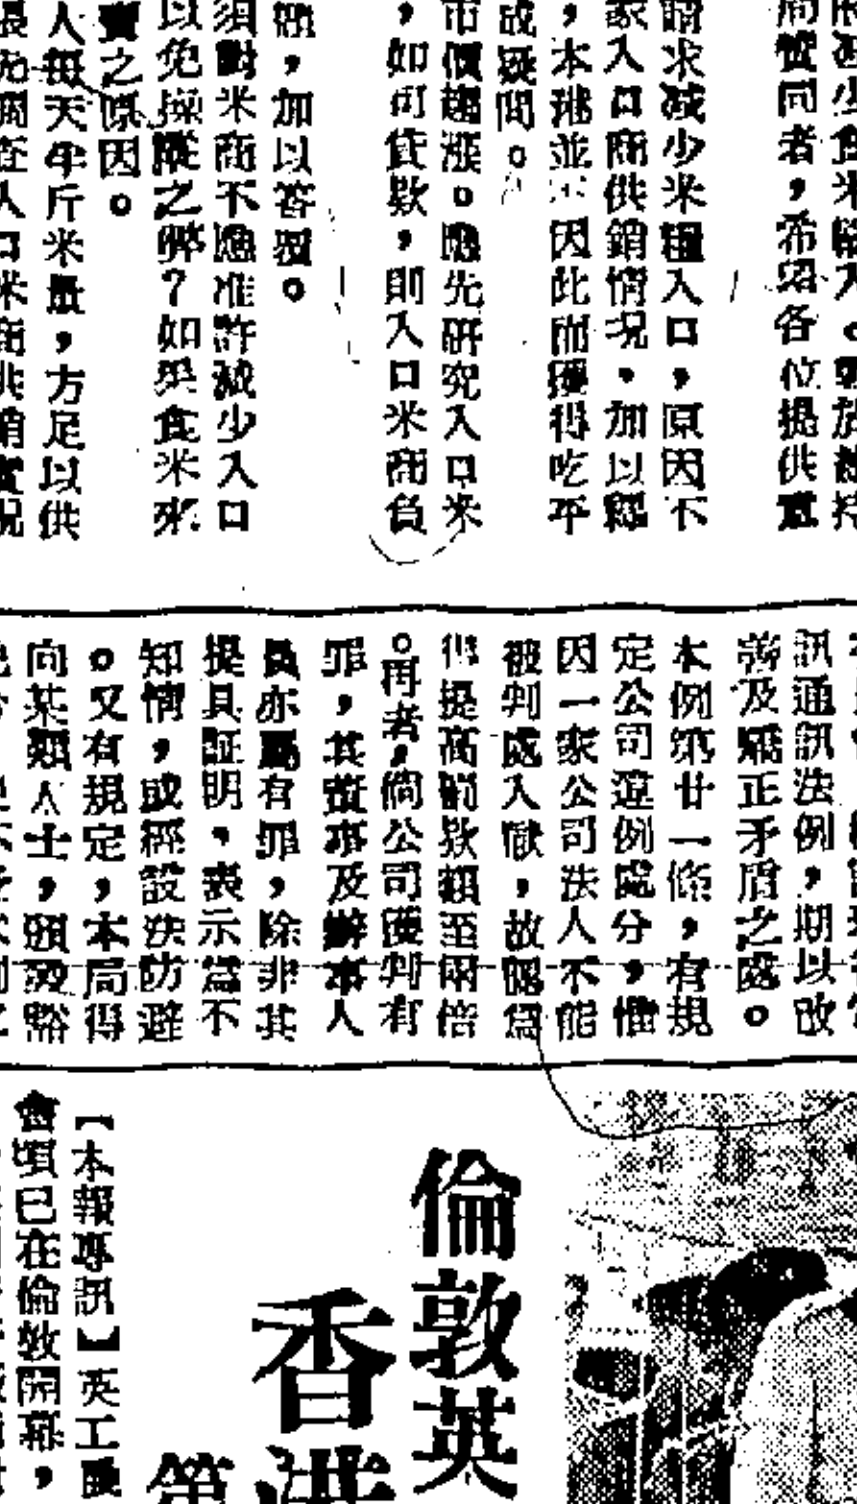 同者，希望各位提供意
請求減少米糧入口，原因不
家入口商供銷情况，加以
，本港並不因此而獲得吃平
成疑問。
市價趨漲。應先研究入口米
，如可貸款，則入口米商負
，加以答覆。
須對米商不應准許減少入口
以免操縱之弊？如果食米來
賣之原因。
人每天半斤米量，方足以供
訊通訊法例，期以改
善及矯正矛盾之處。
本例第廿一條，有規
定公司違例處分，惟
因一家公司法人不能
被判處入獄，故認爲
得提高罰欵額至兩倍
。再者，倘公司獲判有
罪，其董事及辦事人
員亦屬有罪，除非其
提具証明，表示當不
知情，或經設法防避
。又有規定，本局得
向某類人士，頒發豁
倫敦英
香港
第
【本報專訊】英工
會頃已在倫敦開幕，